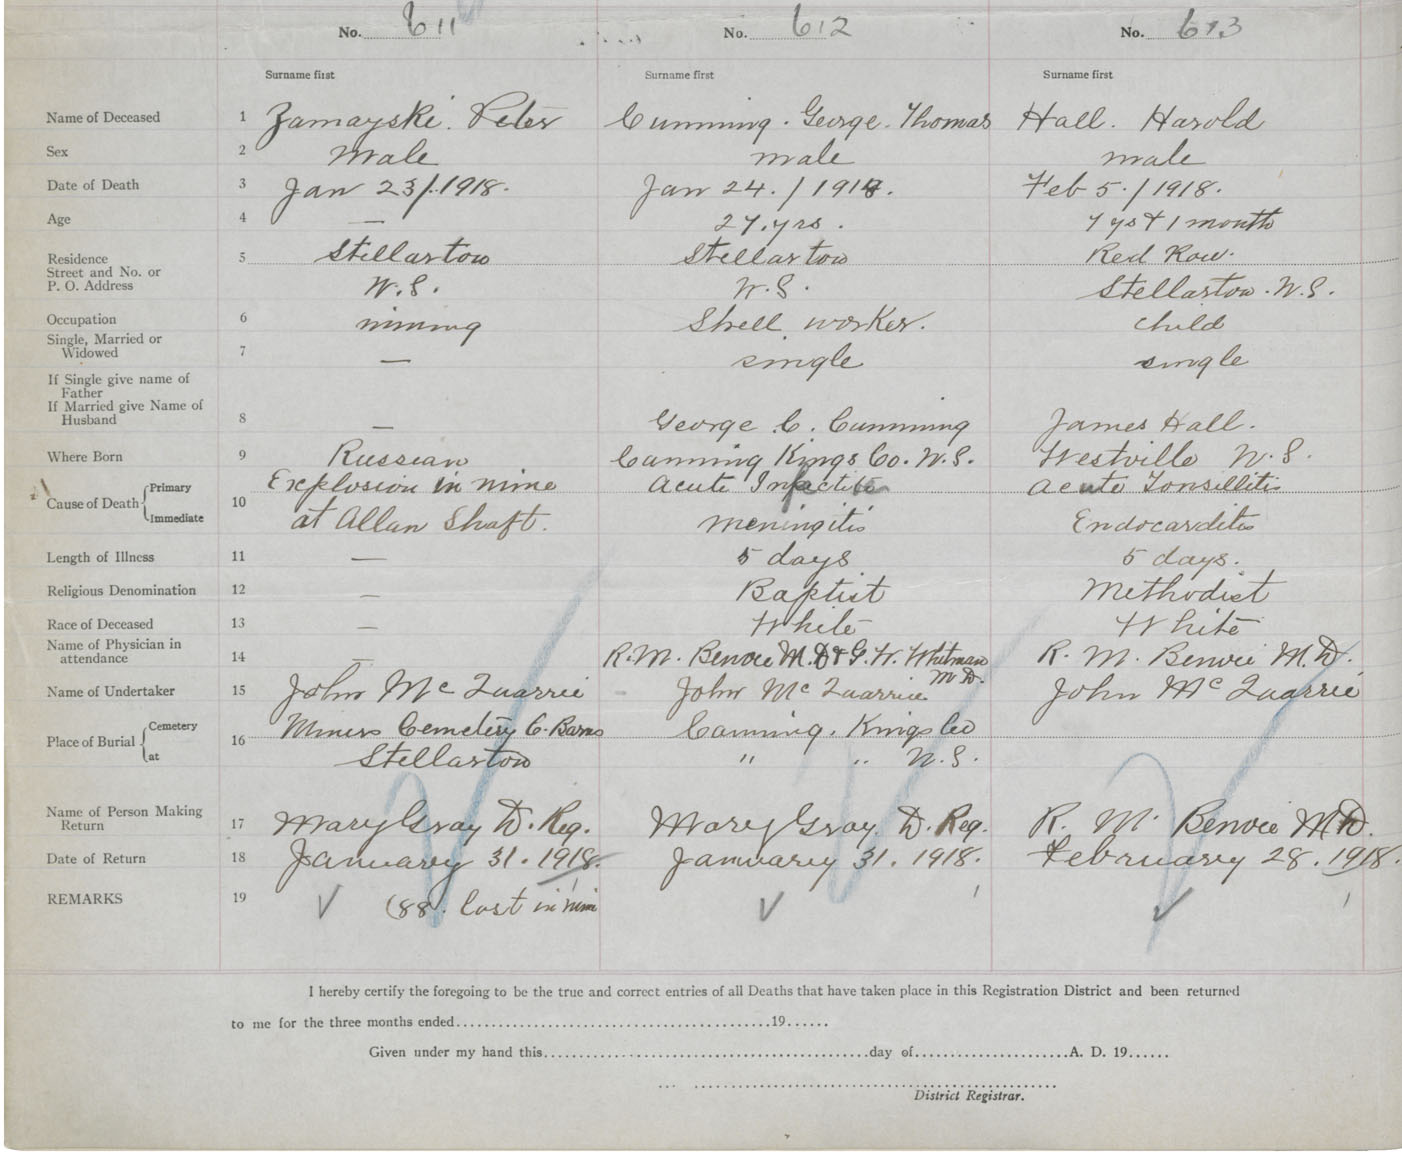 No. 611 No. 612 No. 613
Surname first Surname first Surname first
Name of Deceased 1 Zamayski. Peter Cumming. George. Thomas Hall. Harold
Sex 2 Male male male
Date of Death 3 Jan 23/.1918. Jan 24./1918. Feb 5./1918.
Age 4 — 27.yrs. 7 ys + 1 month
Residence 5 Stellarton Stellarton Red Row.
Street and No. or
P. O. Address N.S. N.S. Stellarton. N.S.
Occupation 6 mining Shell worker. child
Single, Married or
Widowed 7 — single single
If Single give name of
Father
If Married give Name of
Husband 8 — George C. Cumming James Hall.
Where Born 9 Russian Canning Kings Co. N.S. Westville N.S.
Cause of Death Primary 10 Explosion in mine Acute Acute Tonsillitis
Immediate at Allan Shaft. meningitis Endocarditis
Length of Illness 11 — 5 days 5 days.
Religious Denomination 12 — Baptist Methodist
Race of Deceased 13 — White White
Name of Physician in
attendance 14 — R.M. Benvie M.D & G.W. Whitman M.D. R. M. Benvie M.D.
Name of Undertaker 15 John McQuarrie John McQuarrie John McQuarrie
Place of Burial Cemetery 16 Miners Cemetery Canning. Kings Co
at Stellarton " " N.S.
Name of Person Making
Return 17 Mary Gray D. Reg. Mary Gray D. Reg. R. M. Benvie M.D.
Date of Return 18 January 31. 1918. January 31. 1918. February 28. 1918.
REMARKS 19 (88. lost in
I hereby certify the foregoing to be the true and correct entries of all Deaths that have taken place in this Registration District and been returned
to me for the three months ended........................................19......
Given under my hand this........................................day of......................A. D. 19......
District Registrar.